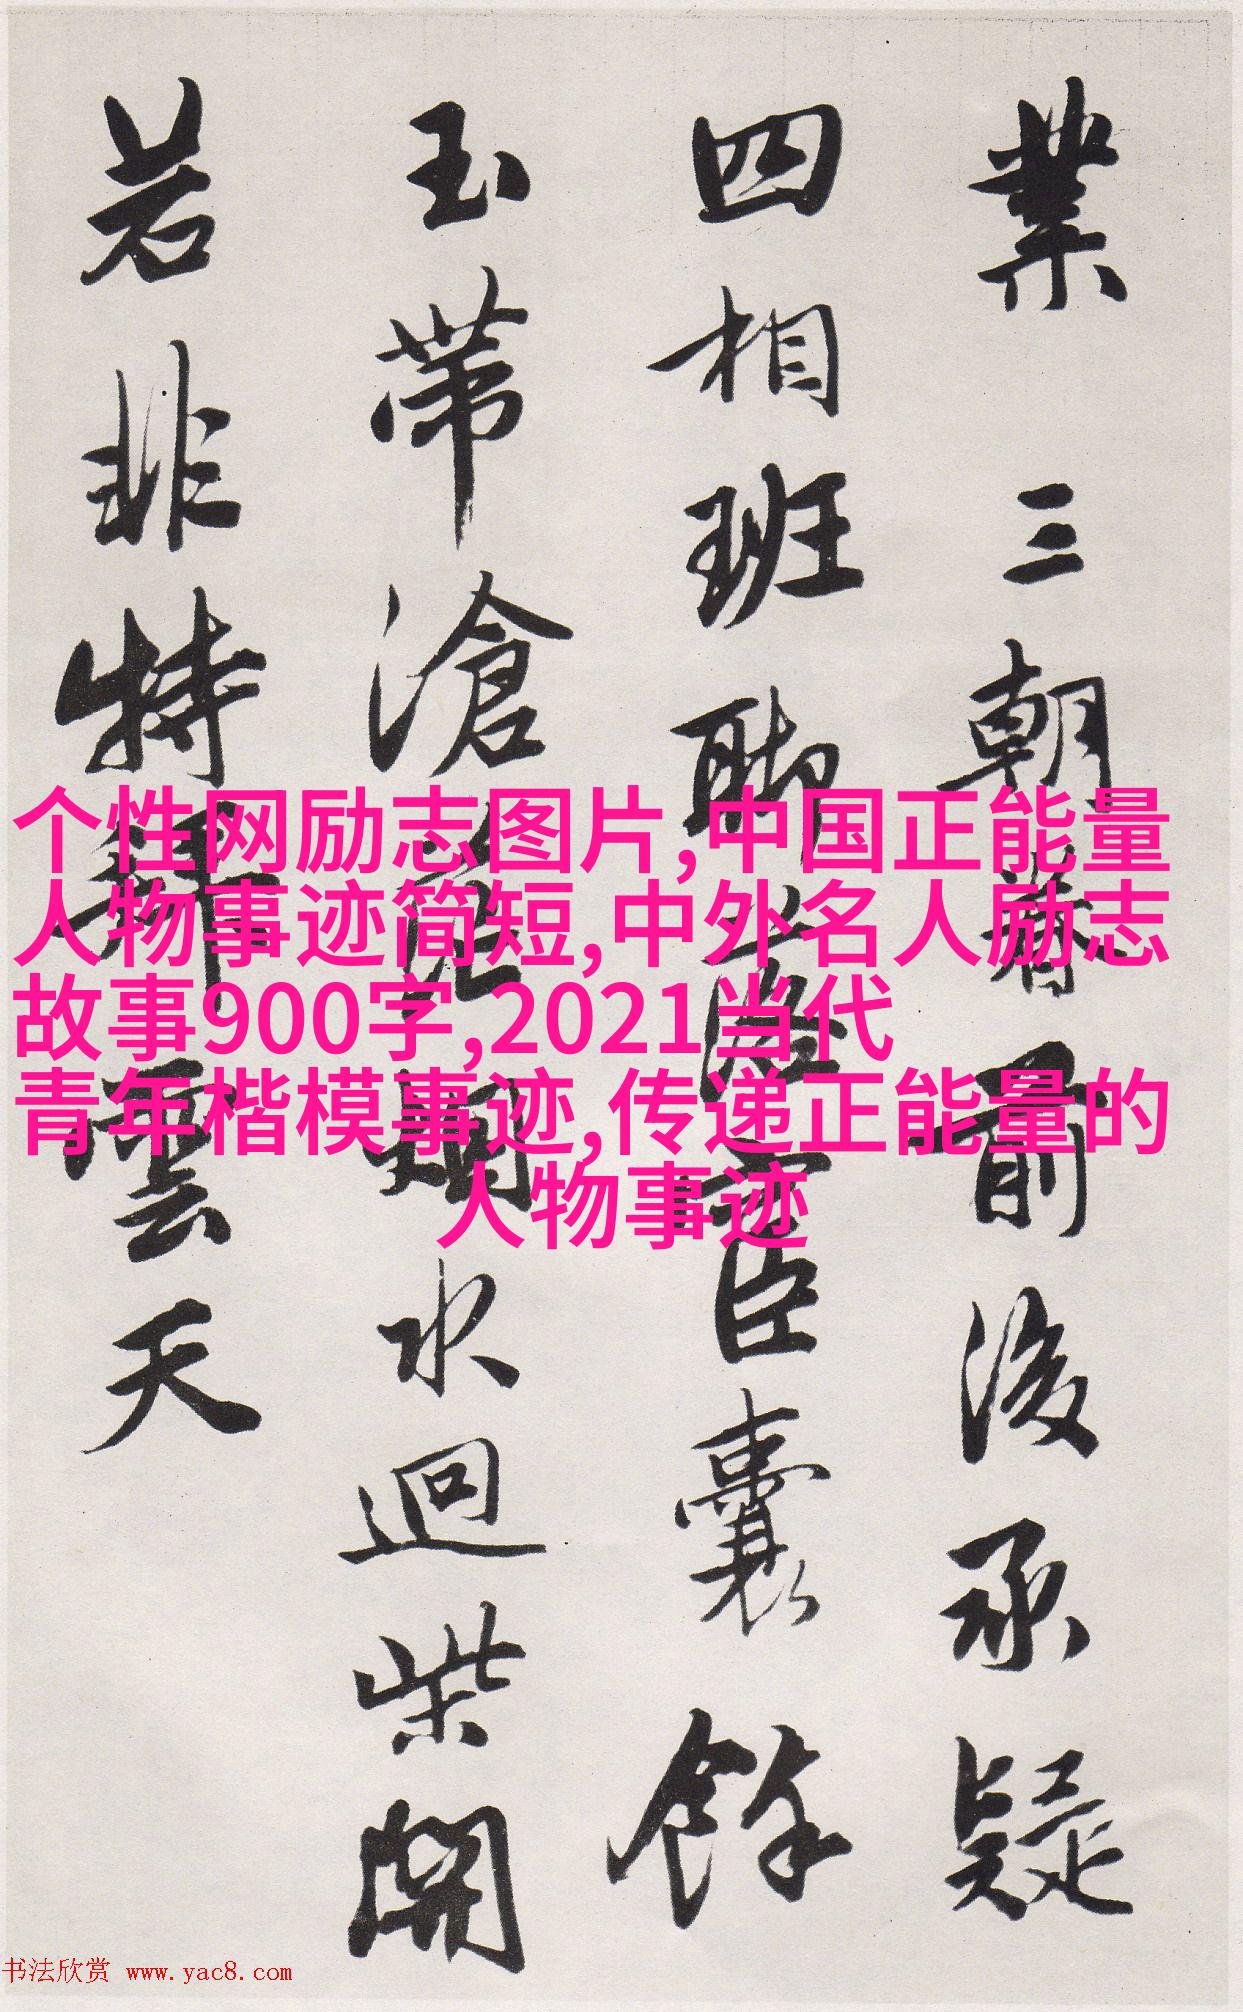 業三朝眷前後承疑
四相班聯臣囊餘
玉帶滄茫烟水迥柴開
若非特拜雲天
个性网励志图片,中国正能量
人物事迹简短,中外名人励志
故事900字,2021当代
青年楷模事迹,传递正能量的
人物事迹
书法欣赏 www.yac8.com